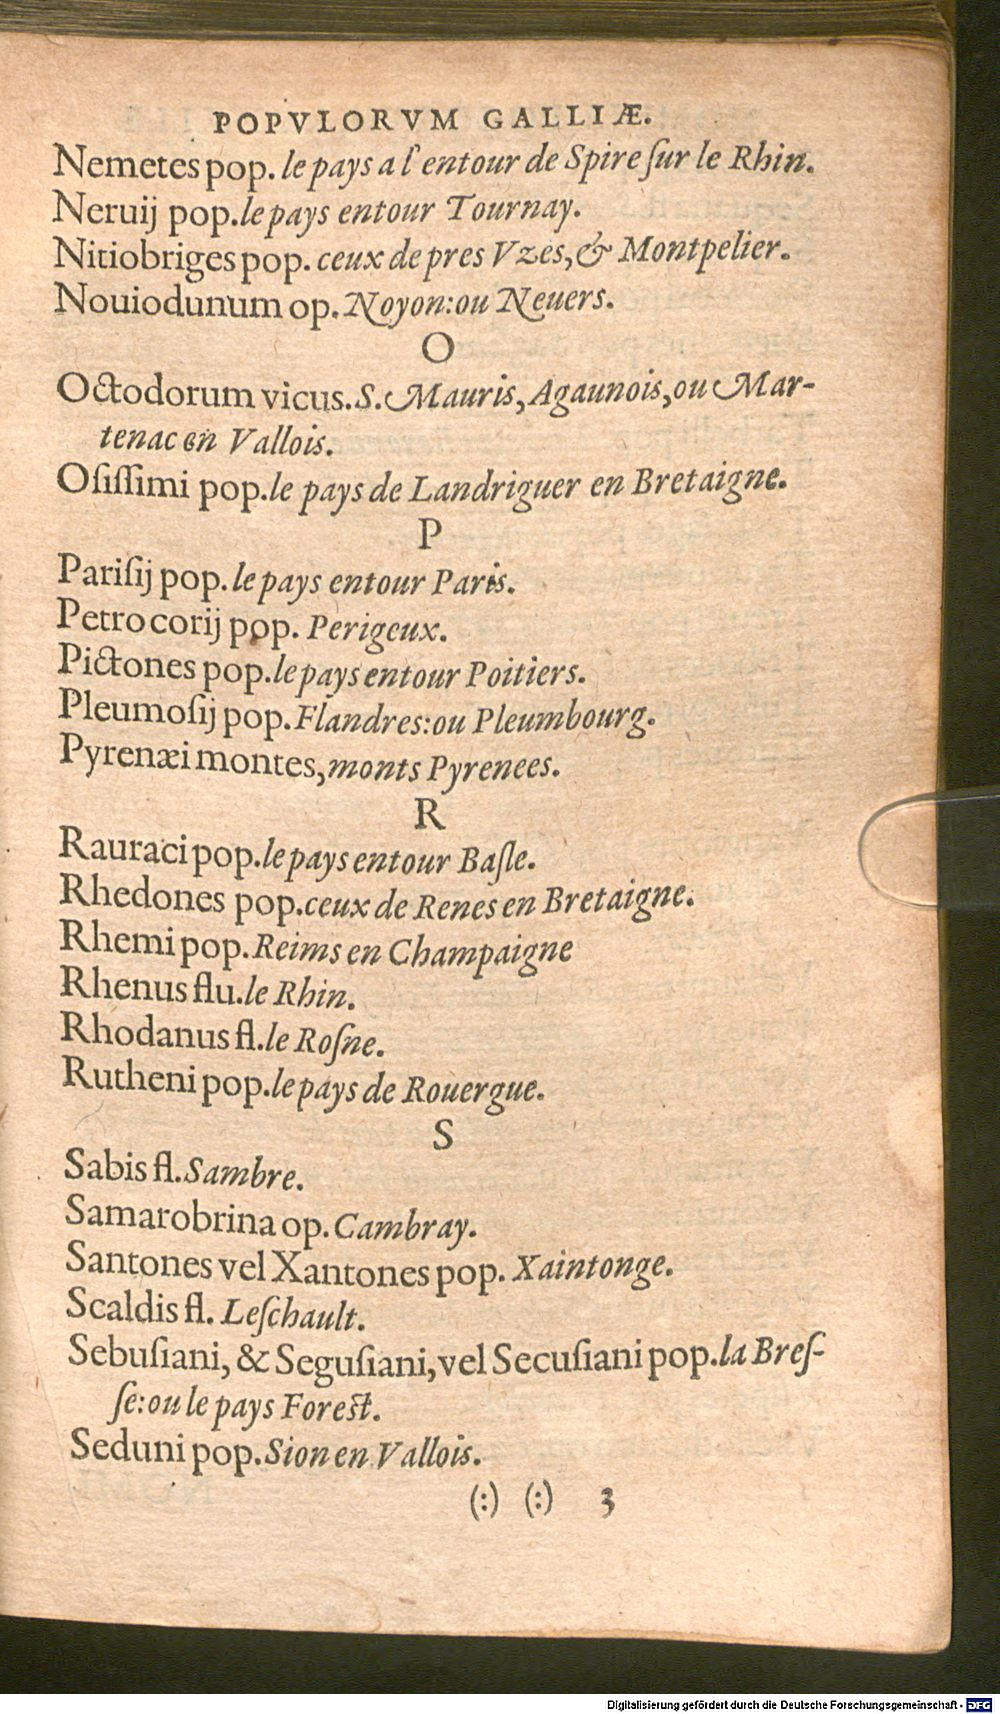 POPVLORVM GALLIÆ.
Nemetes pop. le pays a l'entour de Spire ſur le Rhin.
Neruij pop. le pays entour Tournay.
Nitiobriges pop. ceux de pres Vzes, & Montpelier.
Nouiodunum op. Noyon: ou Neuers.
O
Octodorum vicus. S. Mauris, Agaunois, ou Mar-
tenac en Vallois.
Oſiſſimi pop. le pays de Landriguer en Bretaigne.
P
Pariſij pop. le pays entour Paris.
Petrocorij pop. Perigeux.
Pictones pop. le pays entour Poitiers.
Pleumoſij pop. Flandres: ou Pleumbourg.
Pyrenæi montes, monts Pyrenees.
R
Rauraci pop. le pays entour Baſle.
Rhedones pop. ceux de Renes en Bretaigne.
Rhemi pop. Reims en Champaigne
Rhenus flu. le Rhin.
Rhodanus fl. le Roſne.
Rutheni pop. le pays de Rouergue.
S
Sabis fl. Sambre.
Samarobrina op. Cambray.
Santones vel Xantones pop. Xaintonge.
Scaldis fl. Leſchault.
Sebuſiani, & Seguſiani, vel Secuſiani pop. la Breſ-
ſe: ou le pays Foreſt.
Seduni pop. Sion en Vallois.
(:) (:) 3
Digitalisierung gefördert durch die Deutsche Forschungsgemeinschaft - DFG